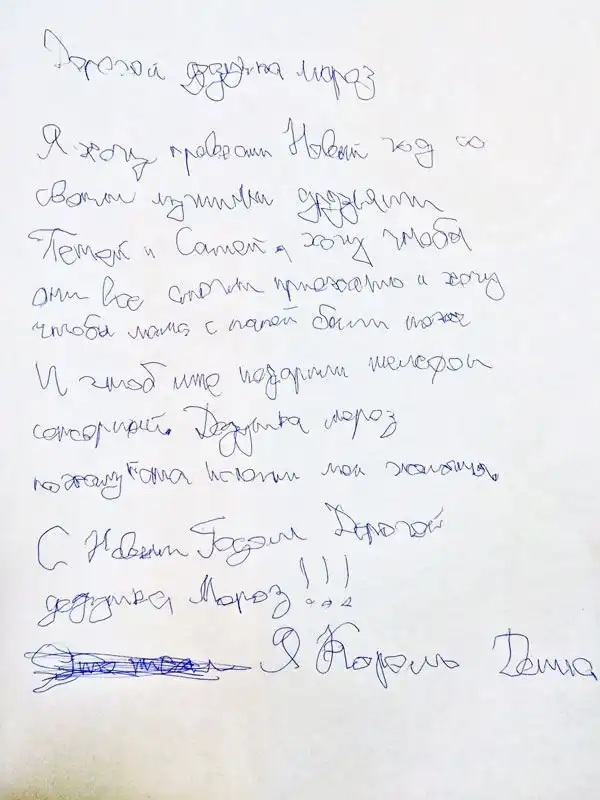 Дарогой дедушка мароз
Я хочу правезти Новый год со
своими лучшими друзьями
Петей и Сашей, хочу чтобы
они все смогли приехать и хочу
чтобы мама с папой были тоже
И чтоб мне подарили телефон
сенсорный. Дедушка мароз
пожалуйста исполни мои желания.
С Новым Годом Дорогой
дедушка Мароз!!!
Я Король Дима